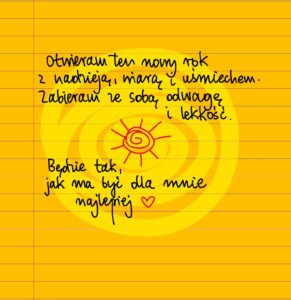 Otwieram ten nowy rok
z nadzieją, wiarą i uśmiechem.
Zabieram ze sobą odwagę
i lekkość.
Będzie tak,
jak ma być dla mnie
najlepiej ♡